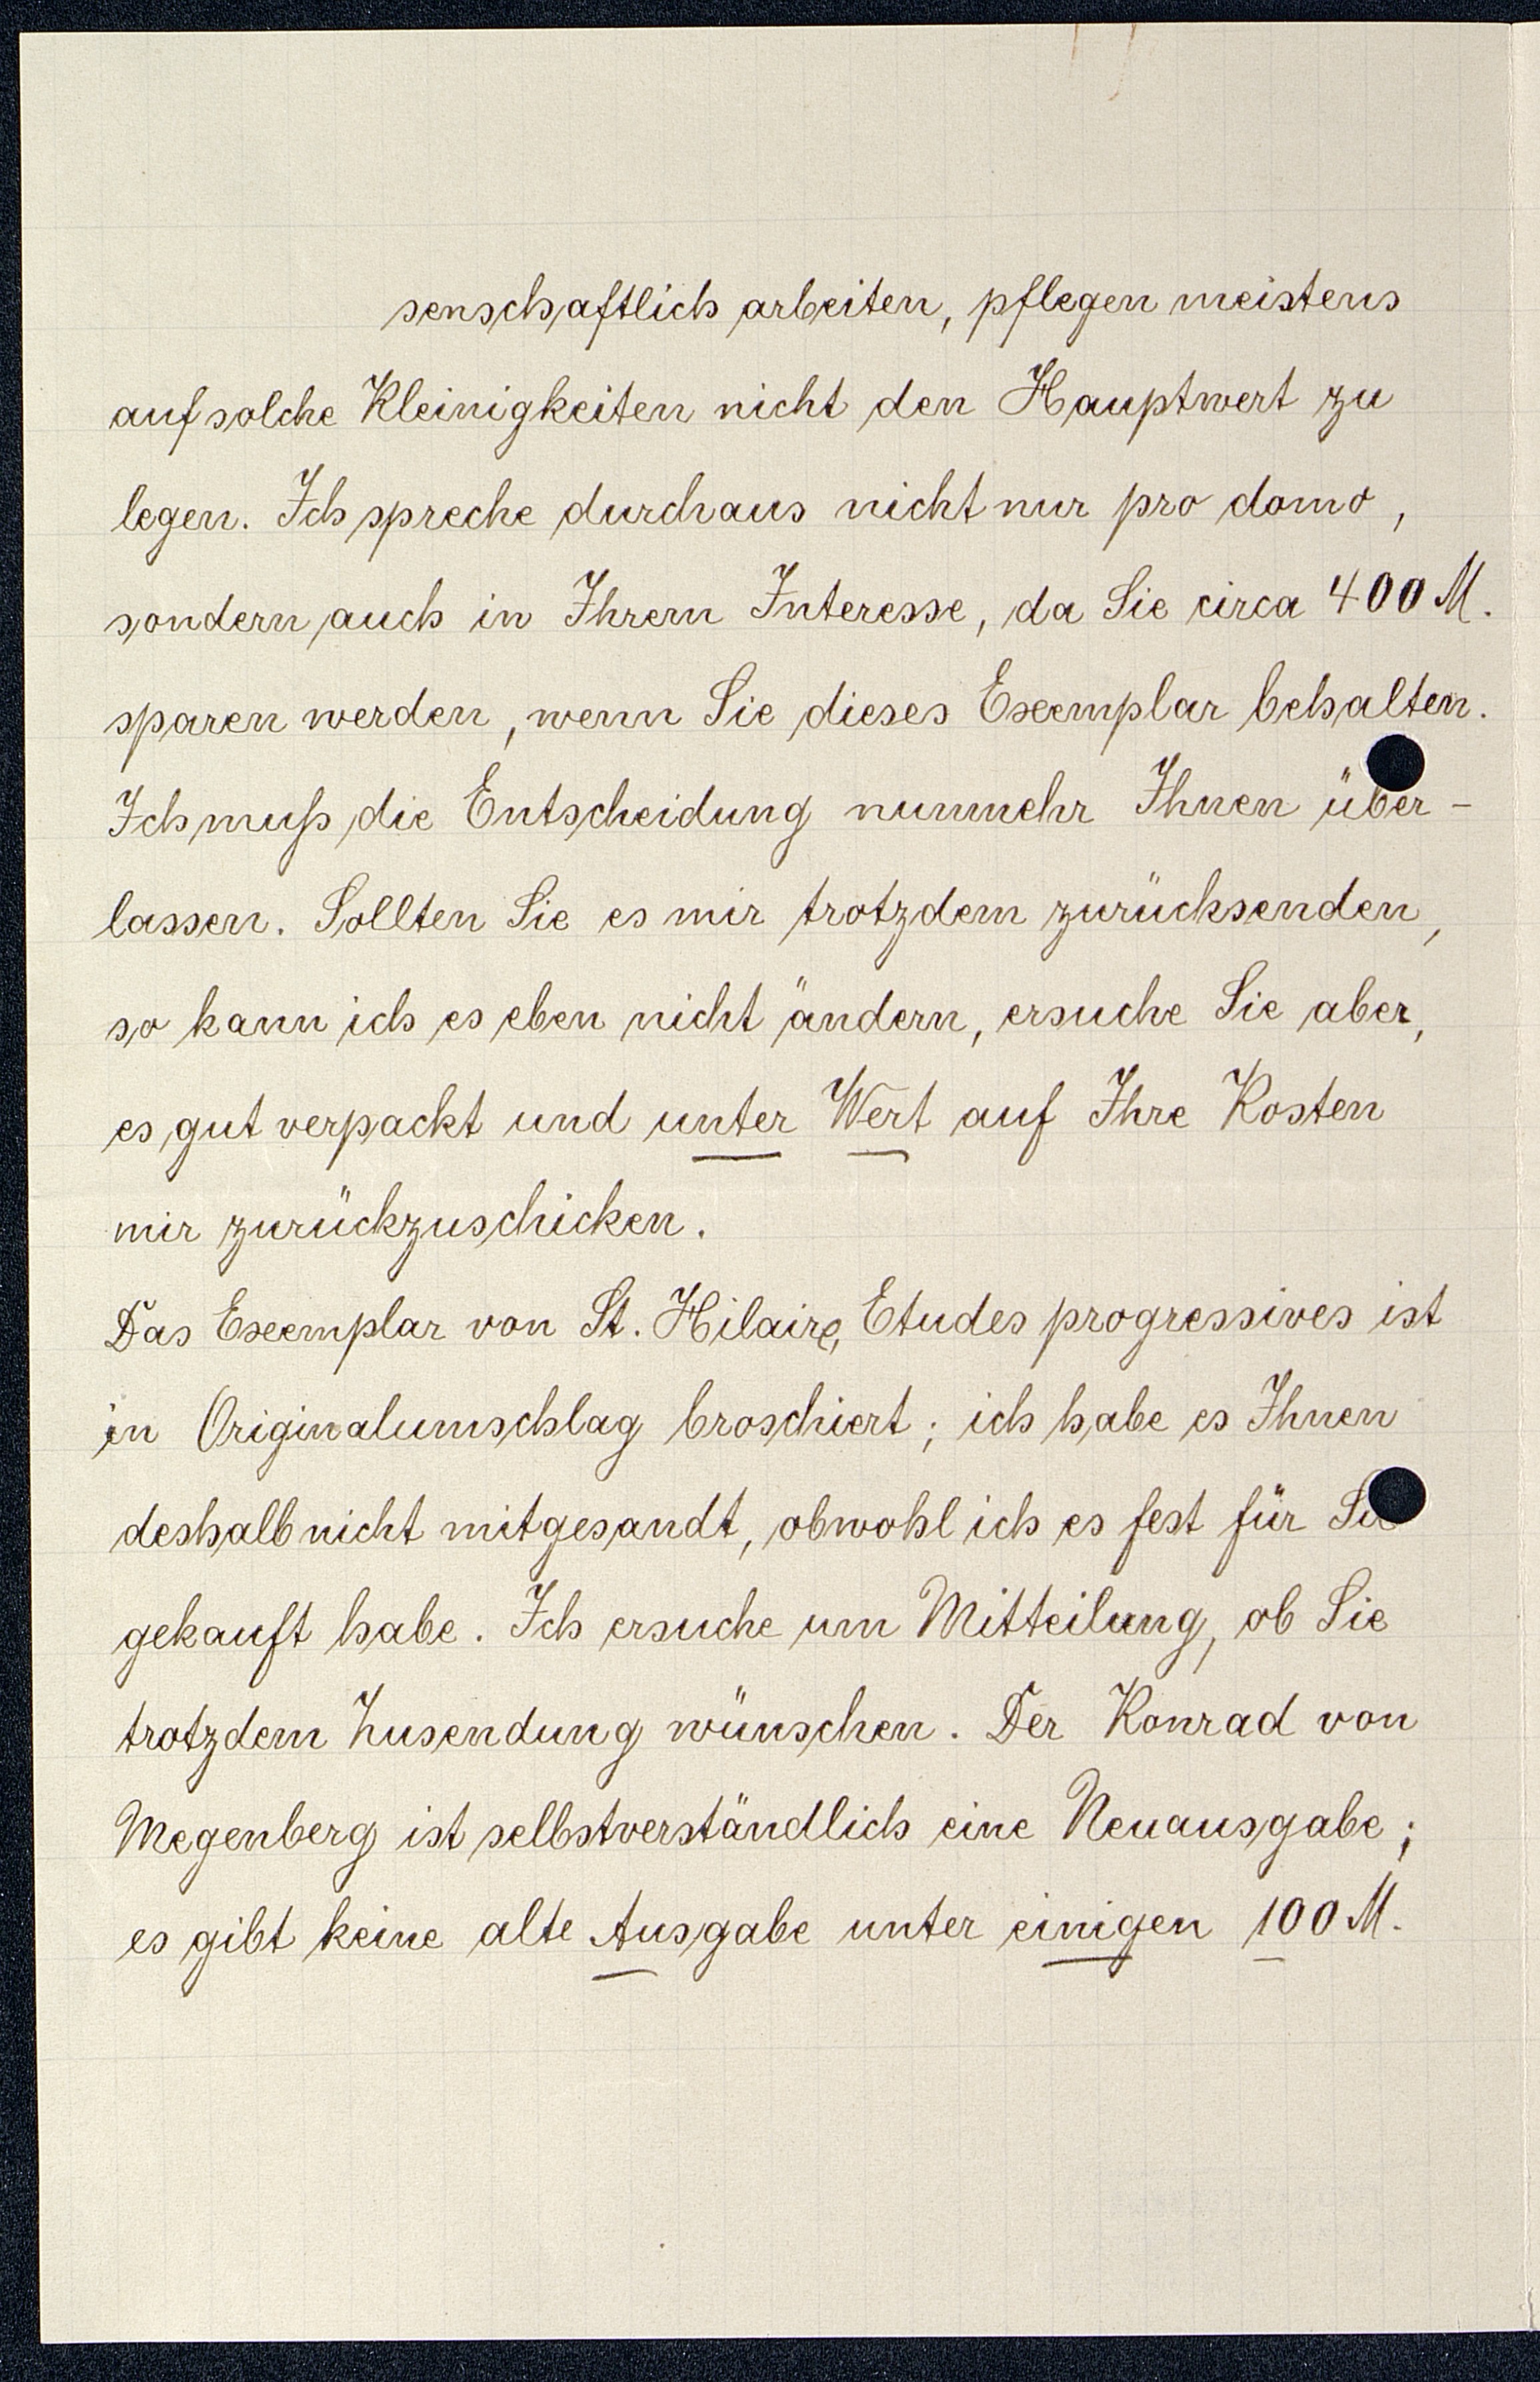 senschaftlich arbeiten, pflegen meistens
auf solche Kleinigkeiten nicht den Hauptwert zu
legen. Ich spreche durchaus nicht nur pro domo,
sondern auch in Ihrem Interesse, da Sie circa 400 M.
sparen werden, wenn Sie dieses Exemplar behalten.
Ich muß die Entscheidung nunmehr Ihnen über-
lassen. Sollten Sie es mir trotzdem zurücksenden,
so kann ich es eben nicht ändern, ersuche Sie aber,
es gut verpackt und unter Wert auf Ihre Kosten
mir zurückzuschicken.
Das Exemplar von St. Hilaire, Etudes progressives ist
in Originalumschlag broschiert; ich habe es Ihnen
deshalb nicht mitgesandt, obwohl ich es fest für Sie
gekauft habe. Ich ersuche um Mitteilung, ob Sie
trotzdem Zusendung wünschen. Der Konrad von
Megenberg ist selbstverständlich eine Neuausgabe;
es gibt keine alte Ausgabe unter einigen 100 M.